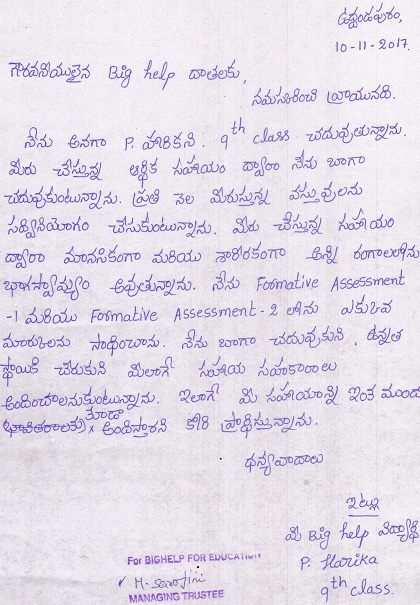 ఉద్దండపురం,
10-11-2017.
గౌరవనీయులైన Big help దాతలకు,
నమస్కరించి వ్రాయునది.
నేను అనగా P. హారికని. 9th class చదువుతున్నాను.
మీరు చేస్తున్న ఆర్థిక సహాయం ద్వారా నేను బాగా
చదువుకుంటున్నాను. ప్రతి నెల మీరుస్తున్న వస్తువులను
సద్వినియోగం చేసుకుంటున్నాను. మీరు చేస్తున్న సహాయం
ద్వారా మానసికంగా మరియు శారీరకంగా అన్ని రంగాలలోను
భాగస్వామ్యం అవుతున్నాను. నేను Formative Assessment
-1 మరియు Formative Assessment-2 లోను ఎక్కువ
మార్కులను సాధించాను. నేను బాగా చదువుకుని, ఉన్నత
స్థాయికి చేరుకుని మీలాగే సహాయ సహకారాలు
అందించాలనుకుంటున్నాను. ఇలాగే మీ సహాయాన్ని ఇంకా ముందు
భావితరాలకు కూడా అందిస్తారని కోరి ప్రార్థిస్తున్నాను.
ధన్యవాదాలు
ఇట్లు
మీ Big help విద్యార్థి
P. Harika
9th class.
For BIGHELP FOR EDUCATION
M. Sarojini
MANAGING TRUSTEE